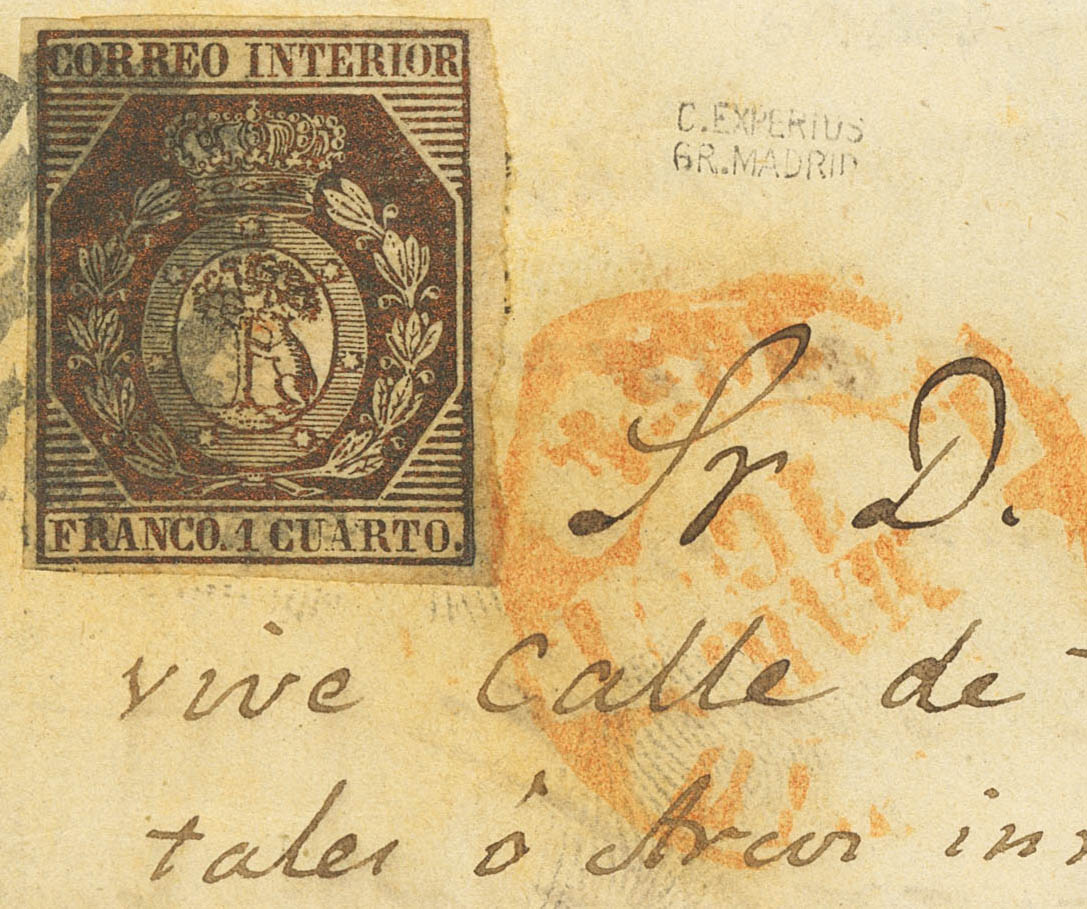 CORREO INTERIOR
FRANCO.1 CUARTO.
C.EXPERTOS
GR.MADRID
Sr D.
vive Calle de
tales ó Arcos